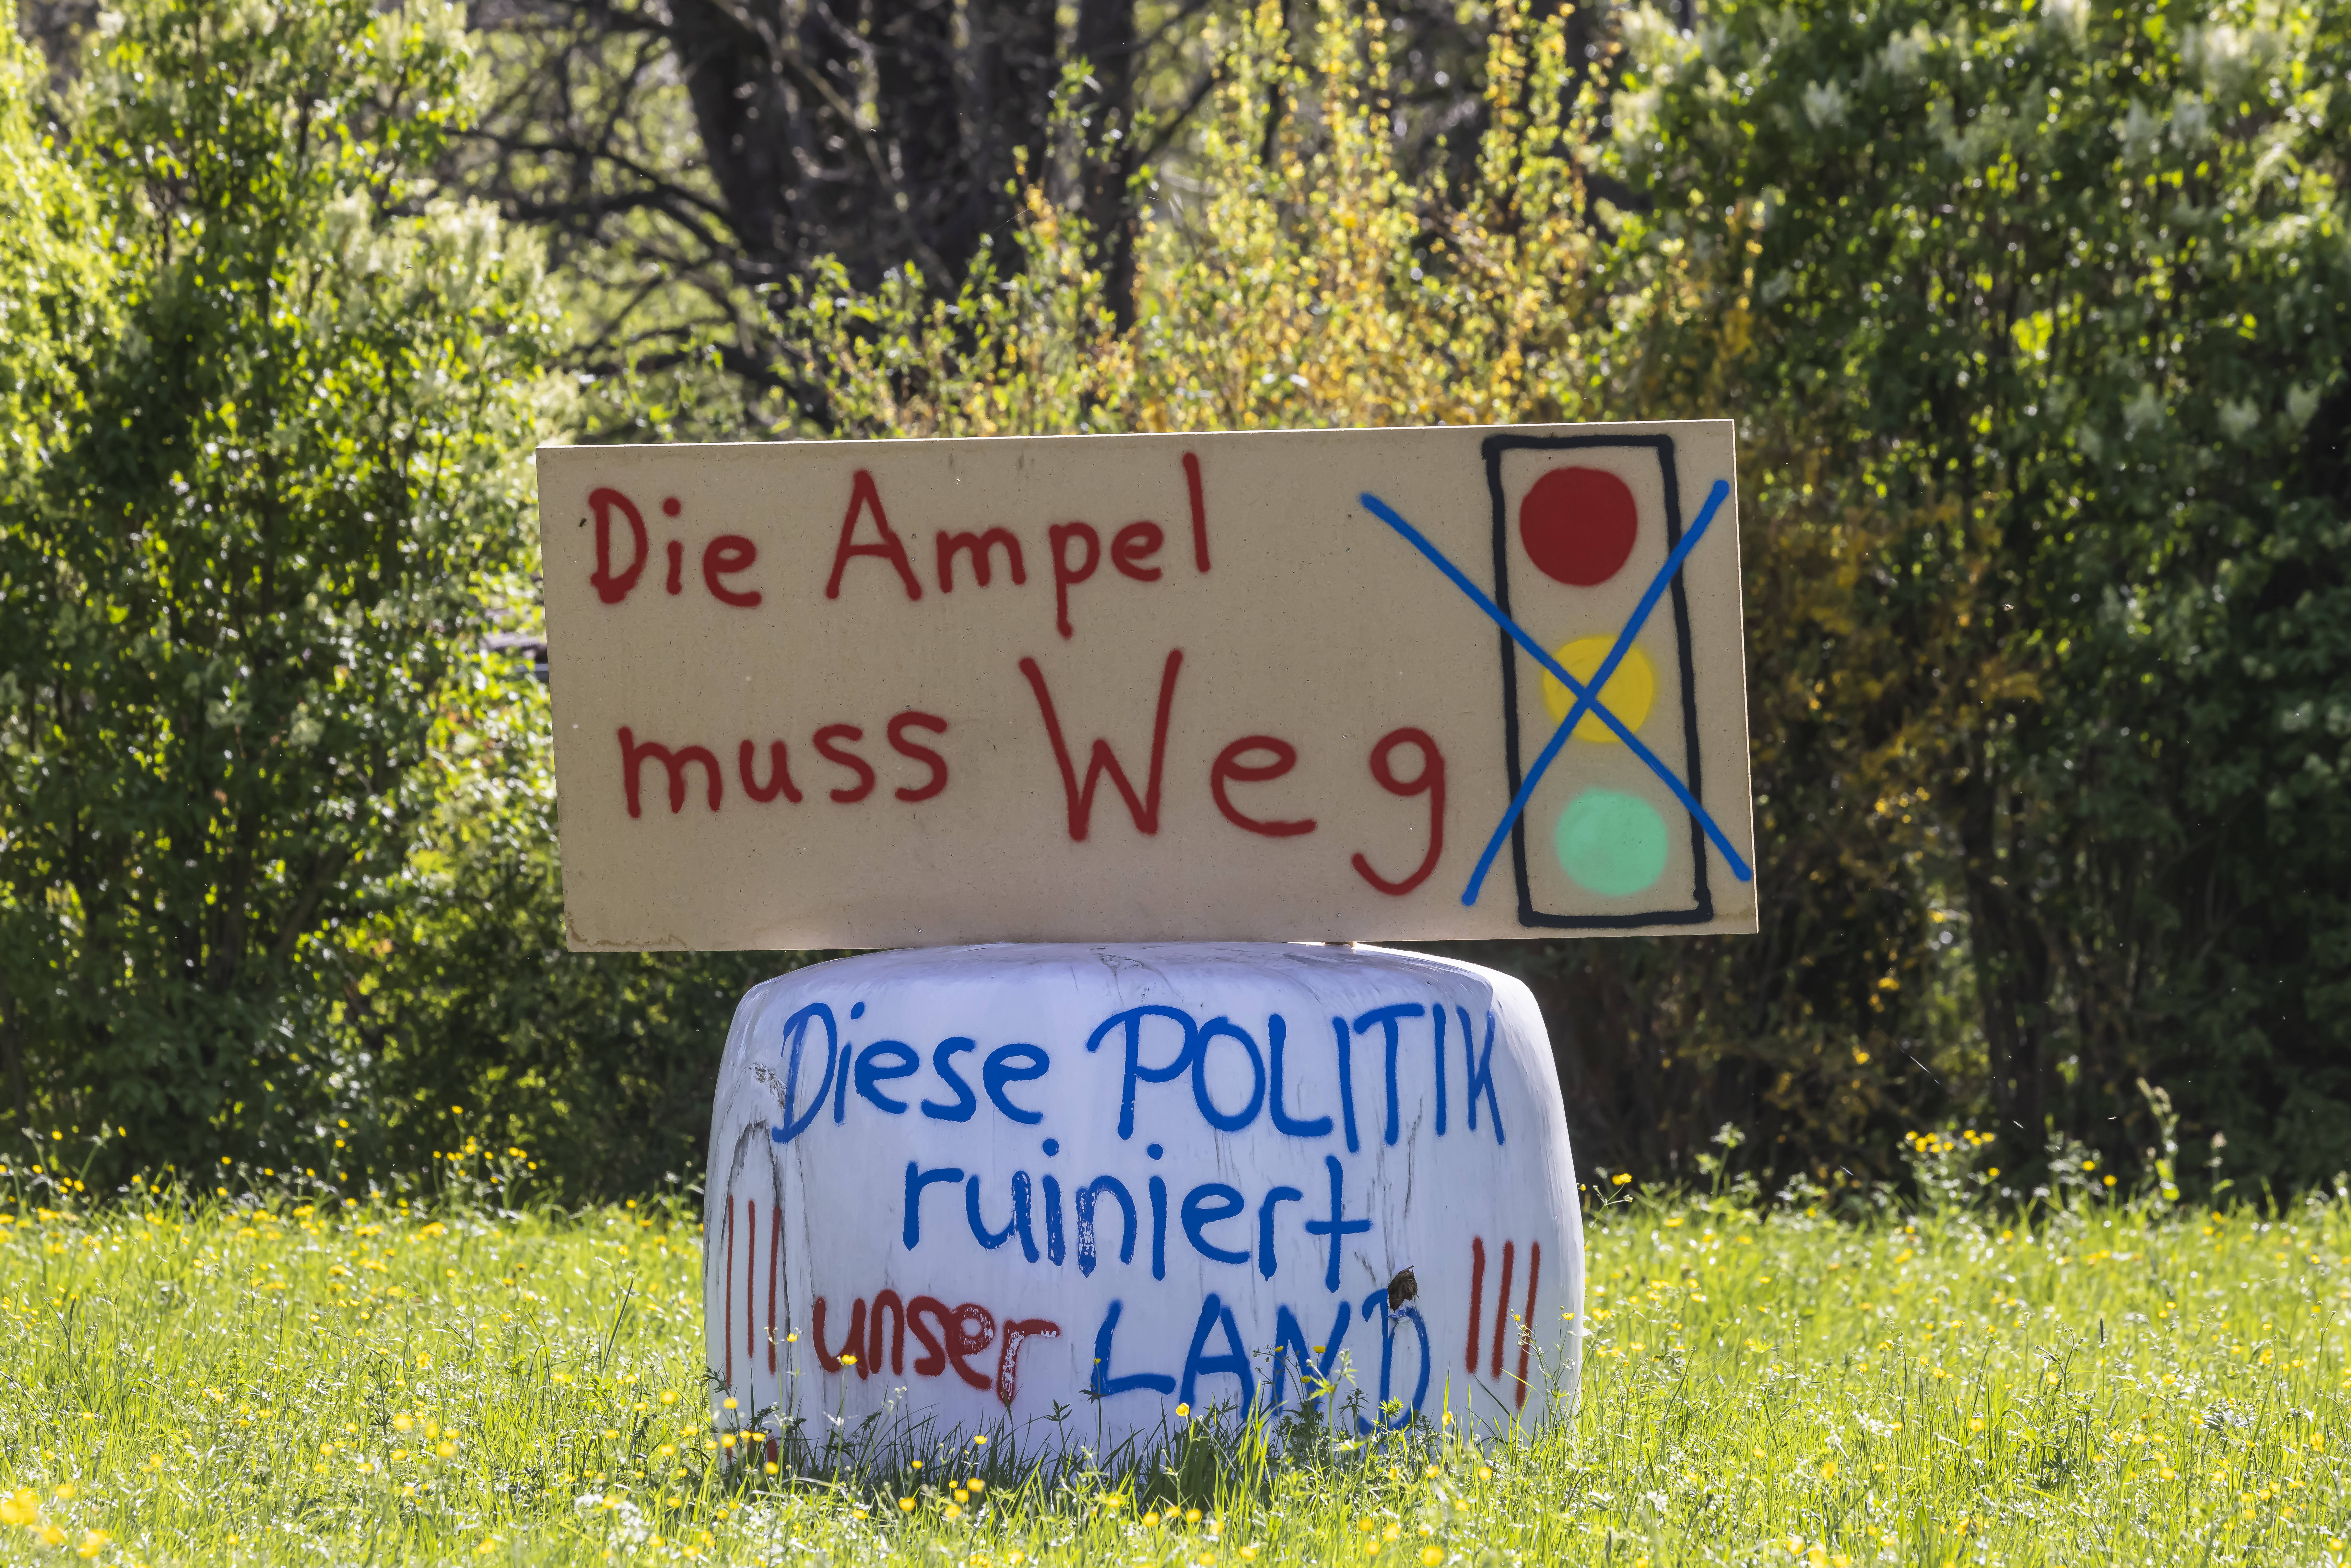 Die Ampel
muss Weg
Diese POLITIK
ruiniert
||| unser LAND |||